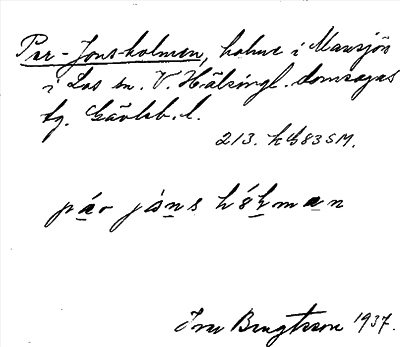 Per-Jons-holmen, holme i Mansjön
i Los sn. V. Hälsingl. domsagas
tg. Gävleb. l.
213. h G83SM.
pår jáns hó̱ẖman
Ivar Bengtsson 1937.